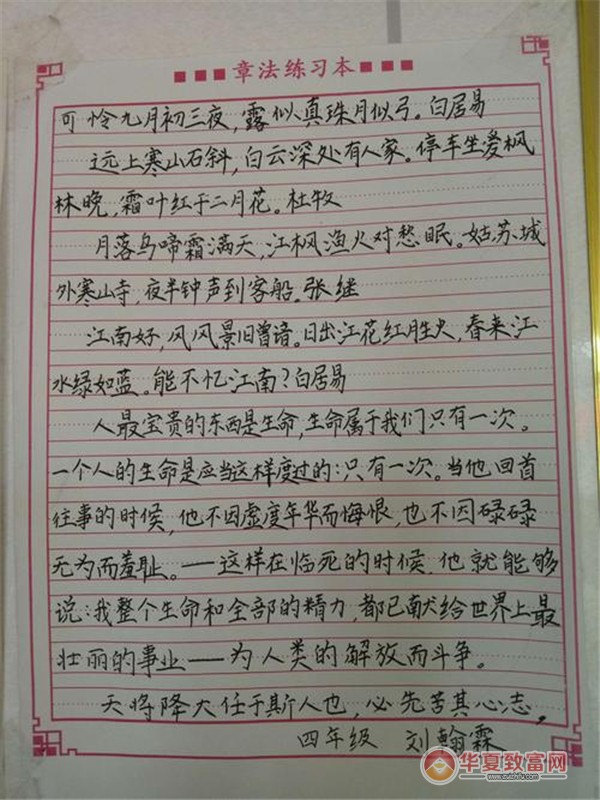 章法练习本
可怜九月初三夜，露似真珠月似弓。白居易
远上寒山石斜，白云深处有人家。停车坐爱枫
林晚，霜叶红于二月花。杜牧
月落乌啼霜满天，江枫渔火对愁眠。姑苏城
外寒山寺，夜半钟声到客船。张继
江南好，风风景旧曾谙。日出江花红胜火，春来江
水绿如蓝。能不忆江南？白居易
人最宝贵的东西是生命，生命属于我们只有一次。
一个人的生命是应当这样度过的：只有一次。当他回首
往事的时候，他不因虚度年华而悔恨，也不因碌碌
无为而羞耻。——这样在临死的时候，他就能够
说：我整个生命和全部的精力，都已献给世界上最
壮丽的事业——为人类的解放而斗争。
天将降大任于斯人也，必先苦其心志，
四年级 刘翰霖
华夏致富网